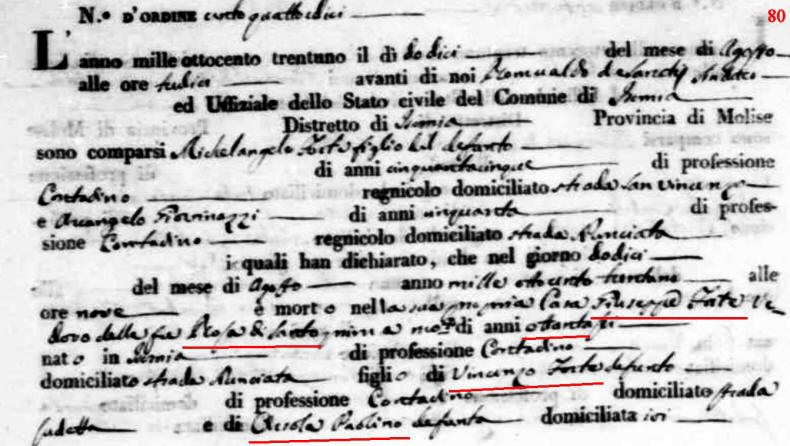 80
N.º D'ORDINE cento quattordici
L'anno mille ottocento trentuno il dì dodici del mese di Agosto
alle ore avanti di noi Romualdo de Sanctis Sindaco
ed Uffiziale dello Stato civile del Comune di Isernia
Distretto di Isernia Provincia di Molise
sono comparsi Michelangelo Forte figlio del defunto
di anni cinquantacinque di professione
Contadino regnicolo domiciliato strada San Vincenzo
e Arcangelo di anni cinquanta di profes-
sione Contadino regnicolo domiciliato strada Nunciata
i quali han dichiarato, che nel giorno dodici
del mese di Agosto anno mille ottocento trentuno alle
ore nove è morto nella sua propria Casa Giuseppe Forte Ve-
dovo della fu Rosa di di anni ottantasei
nato in Isernia di professione Contadino
domiciliato strada Nunciata figlio di Vincenzo Forte defunto
di professione Contadino domiciliato strada
sudetta e di Orsola Paolino defunta domiciliata ivi